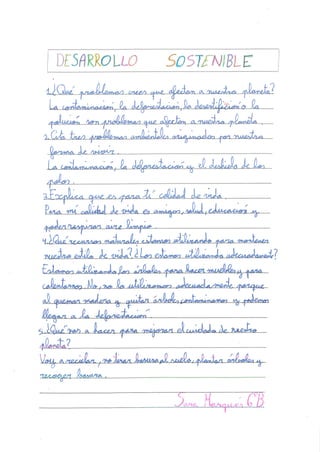 DESARROLLO SOSTENIBLE
1.¿Qué problemas crees que afectan a nuestro planeta?
La contaminación, la deforestación, la desertificación o la
polución son problemas que afectan a nuestro planeta.
2.Cita tres problemas ambientales originados por nuestra
forma de vivir.
La contaminación, la deforestación y el deshielo de los
polos.
3.Explica que es para ti calidad de vida.
Para mi calidad de vida es amigos, salud, educación y
poder respirar aire limpio.
4.¿Qué recursos naturales estamos utilizando para mantener
nuestro estilo de vida? ¿Los estamos utilizando adecuadamente?
Estamos utilizando los árboles para hacer muebles y para
calentarnos. No, no lo utilizamos adecuadamente porque
al quemar madera y quitar árboles, contaminamos y podemos
llegar a la deforestación.
5.¿Qué vas a hacer para mejorar el cuidado de nuestro
planeta?
Voy a reciclar, no tirar basura al suelo, plantar árboles y
recoger basura.
Sara Marqués 6ºB